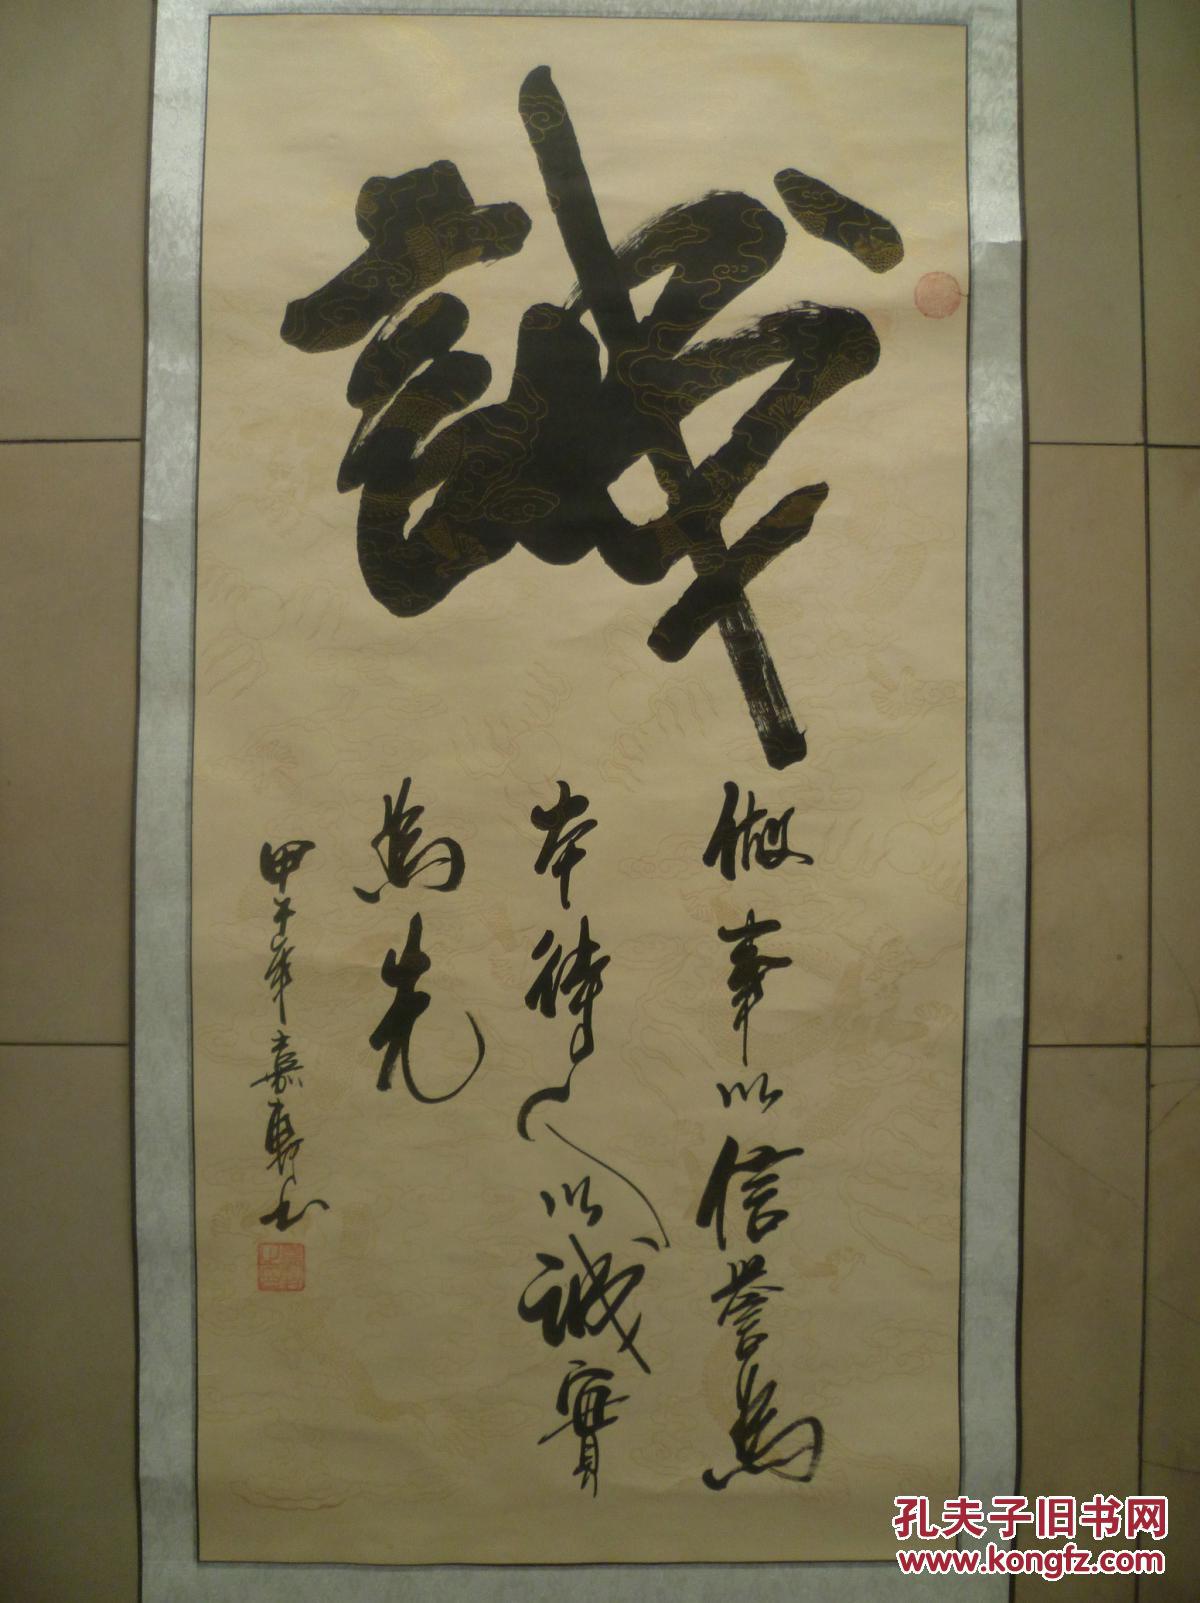 誠
做事以信誉為
本待人以誠實
為先
甲子年嘉勳書
孔夫子旧书网
www.kongfz.com